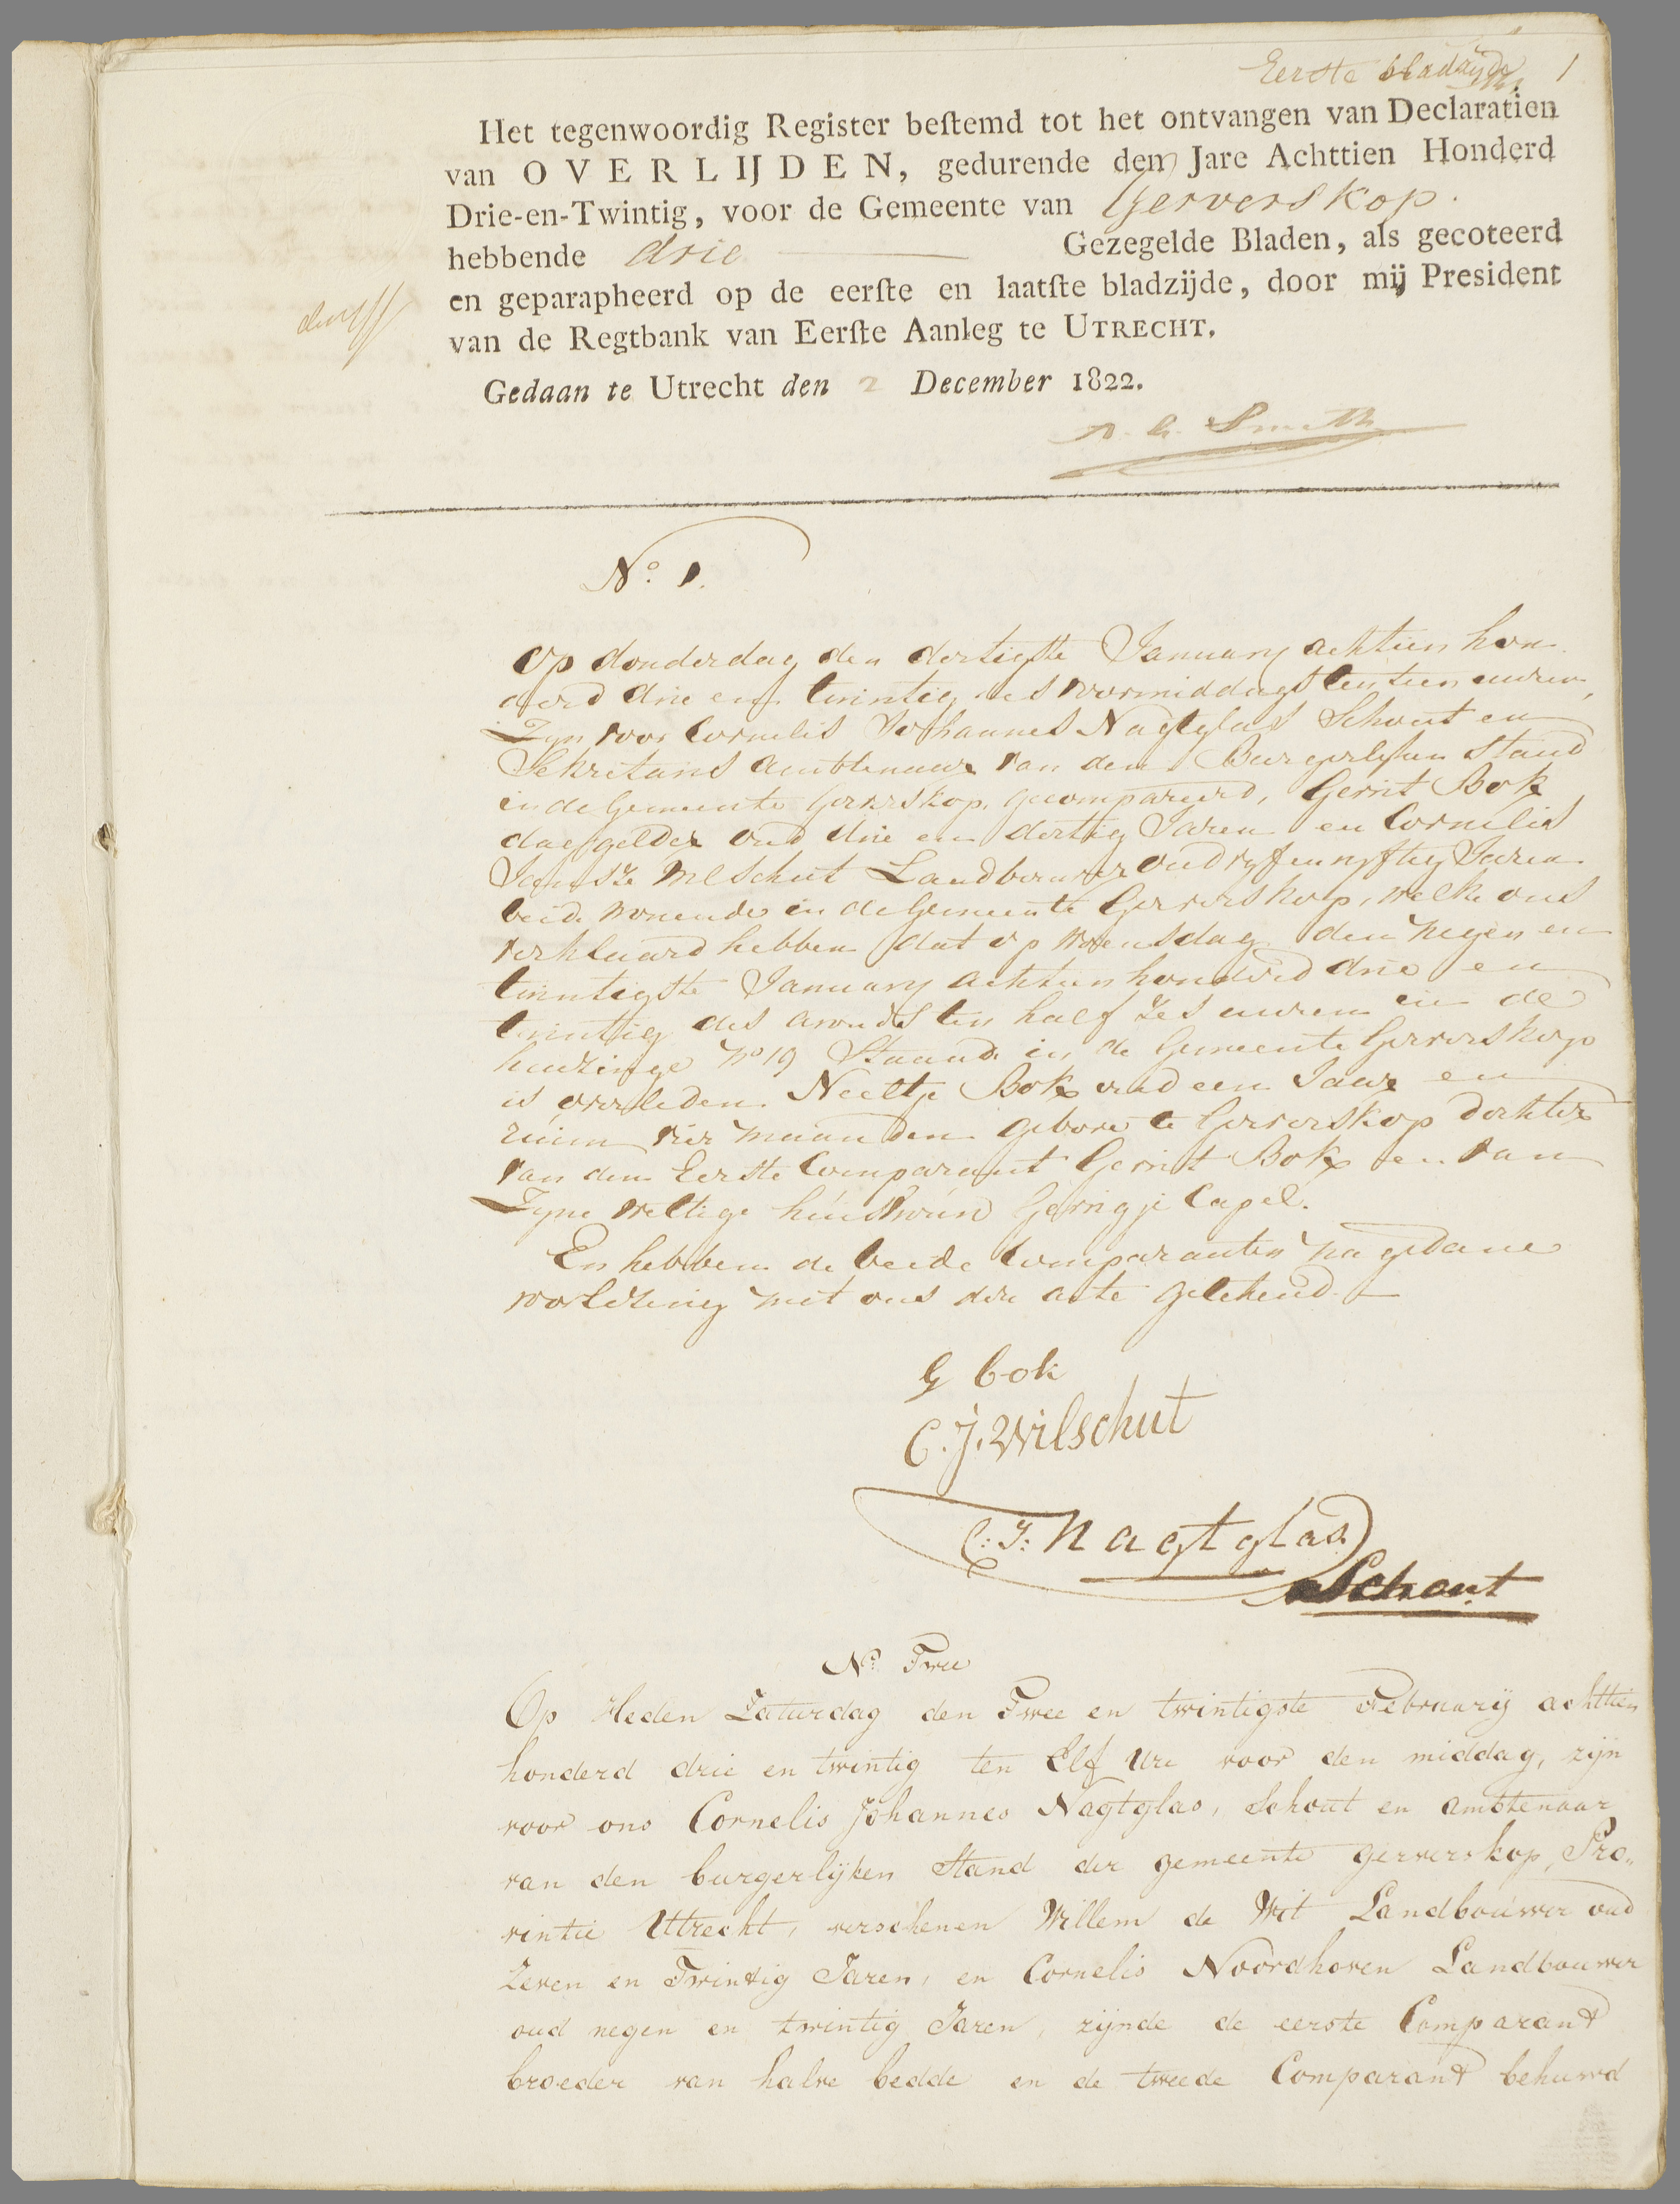 Eerste bladzijde 1
Het tegenwoordig Register beſtemd tot het ontvangen van Declaratien
van OVERLIJDEN, gedurende den Jare Achttien Honderd
Drie-en-Twintig, voor de Gemeente van Gerverskop.
hebbende drie Gezegelde Bladen, als gecoteerd
en geparapheerd op de eerſte en laatſte bladzijde, door mij President
van de Regtbank van Eerſte Aanleg te UTRECHT.
Gedaan te Utrecht den 2 December 1822.
No. 1.
Op donderdag den dertigste January achtien hon
derd drie en twintig des voormiddags ten tien uuren,
Zyn voor Cornelis Johannes Nagtglas Schout en
Sekretaris Ambtenaar van den Burgerlyken Stand
in de Gemeente Gerverskop, gecompareerd, Gerrit Bok
daggelder oud drie en dertig Jaren en Cornelis
Jansze Wilschut Landbouwer oud vyf en vyftig Jaren
beide wonende in de Gemeente Gerverskop, welke ons
verklaard hebben dat op woensdag den negen en
twintigste January achtien honderd drie en
twintig des avonds ten half zes uuren in de
huizinge No 19 Staande in de Gemeente Gerverskop
is overleden Neeltje Bok oud een Jaar en
ruim vier maanden gebore te Gerverskop dochter
van den Eerste Comparant Gerrit Bok en van
Zyne wettige huisvrouw Gerrigje Capel.
En hebben de beide Comparanten na gedane
voorlezing met ons deze acte getekend
G bok
C. J. Wilschut
C: J: Nagtglas
Schout
No. Twee
Op Heden Zaturdag den Twee en twintigste Februarij achttien
honderd drie en twintig ten Elf Ure voor den middag, zijn
voor ons Cornelis Johannes Nagtglas, Schout en Ambtenaar
van den burgerlijken Stand der gemeente Gerverskop, Pro„
vintie Uttrecht, verschenen Willem de Wit Landbouwer oud
Zeven en Twintig Jaren, en Cornelis Noordhoven Landbouwer
oud negen en twintig Jaren, zijnde de eerste Comparant
broeder van halve bedde en de tweede Comparant behuwd